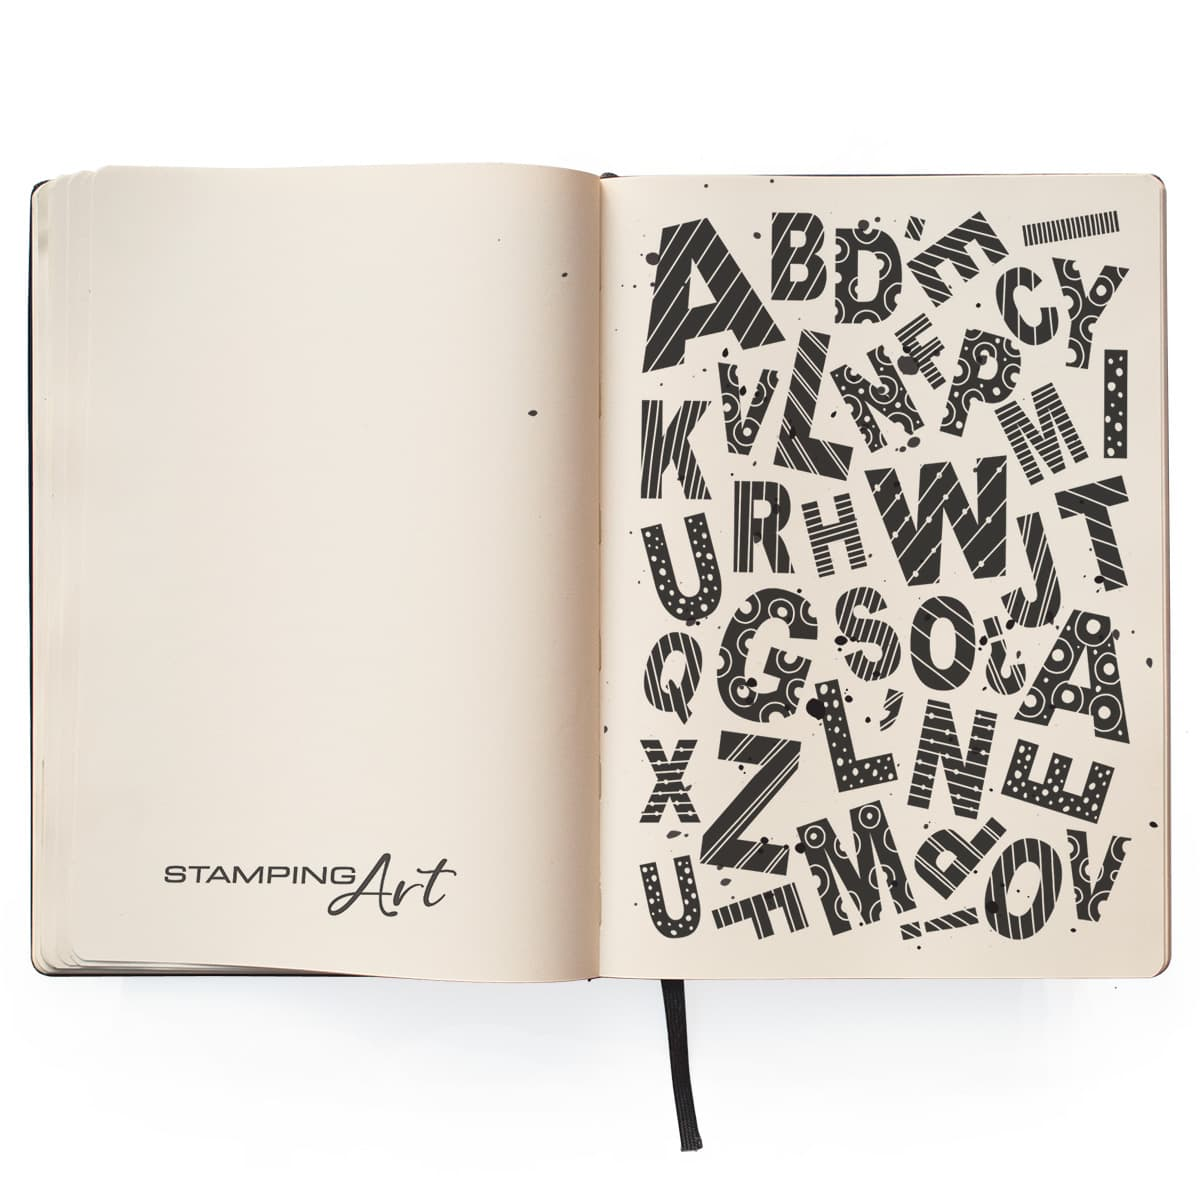 STAMPING Art
A B D ' E I
C Y
V L N F P
K M I
R H W T
U J
G S O ¿ A
Q L ,
X Z N E
U F M P O V
!